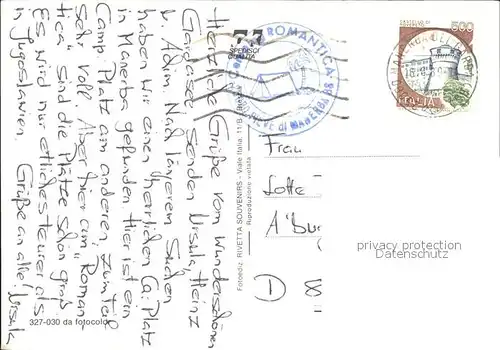 Herzliche Grüße vom wunderschönen
Gardasee senden Ursula, Heinz
u. Achim. Nach längerem Suchen
haben wir einen herrlichen Ca. Platz
in Manerba gefunden. Hier ist ein
Camp. Platz am anderen, zum Teil
sehr voll. Aber hier am "Roman
tica" sind die Plätze schon groß.
Es wird nur etliches teurer als
in Jugoslawien. Grüße an alle! Ursula
327-030 da fotocolor
Fotoediz. RIVETTA SOUVENIRS - Viale Italia, 11B
Riproduzione vietata
77
SPEDISCI
QUALITÀ
ROMANTICA
PIEVE di MANERBA
500
ITALIA
Frau
Lotte
privacy protection
Datenschutz
D